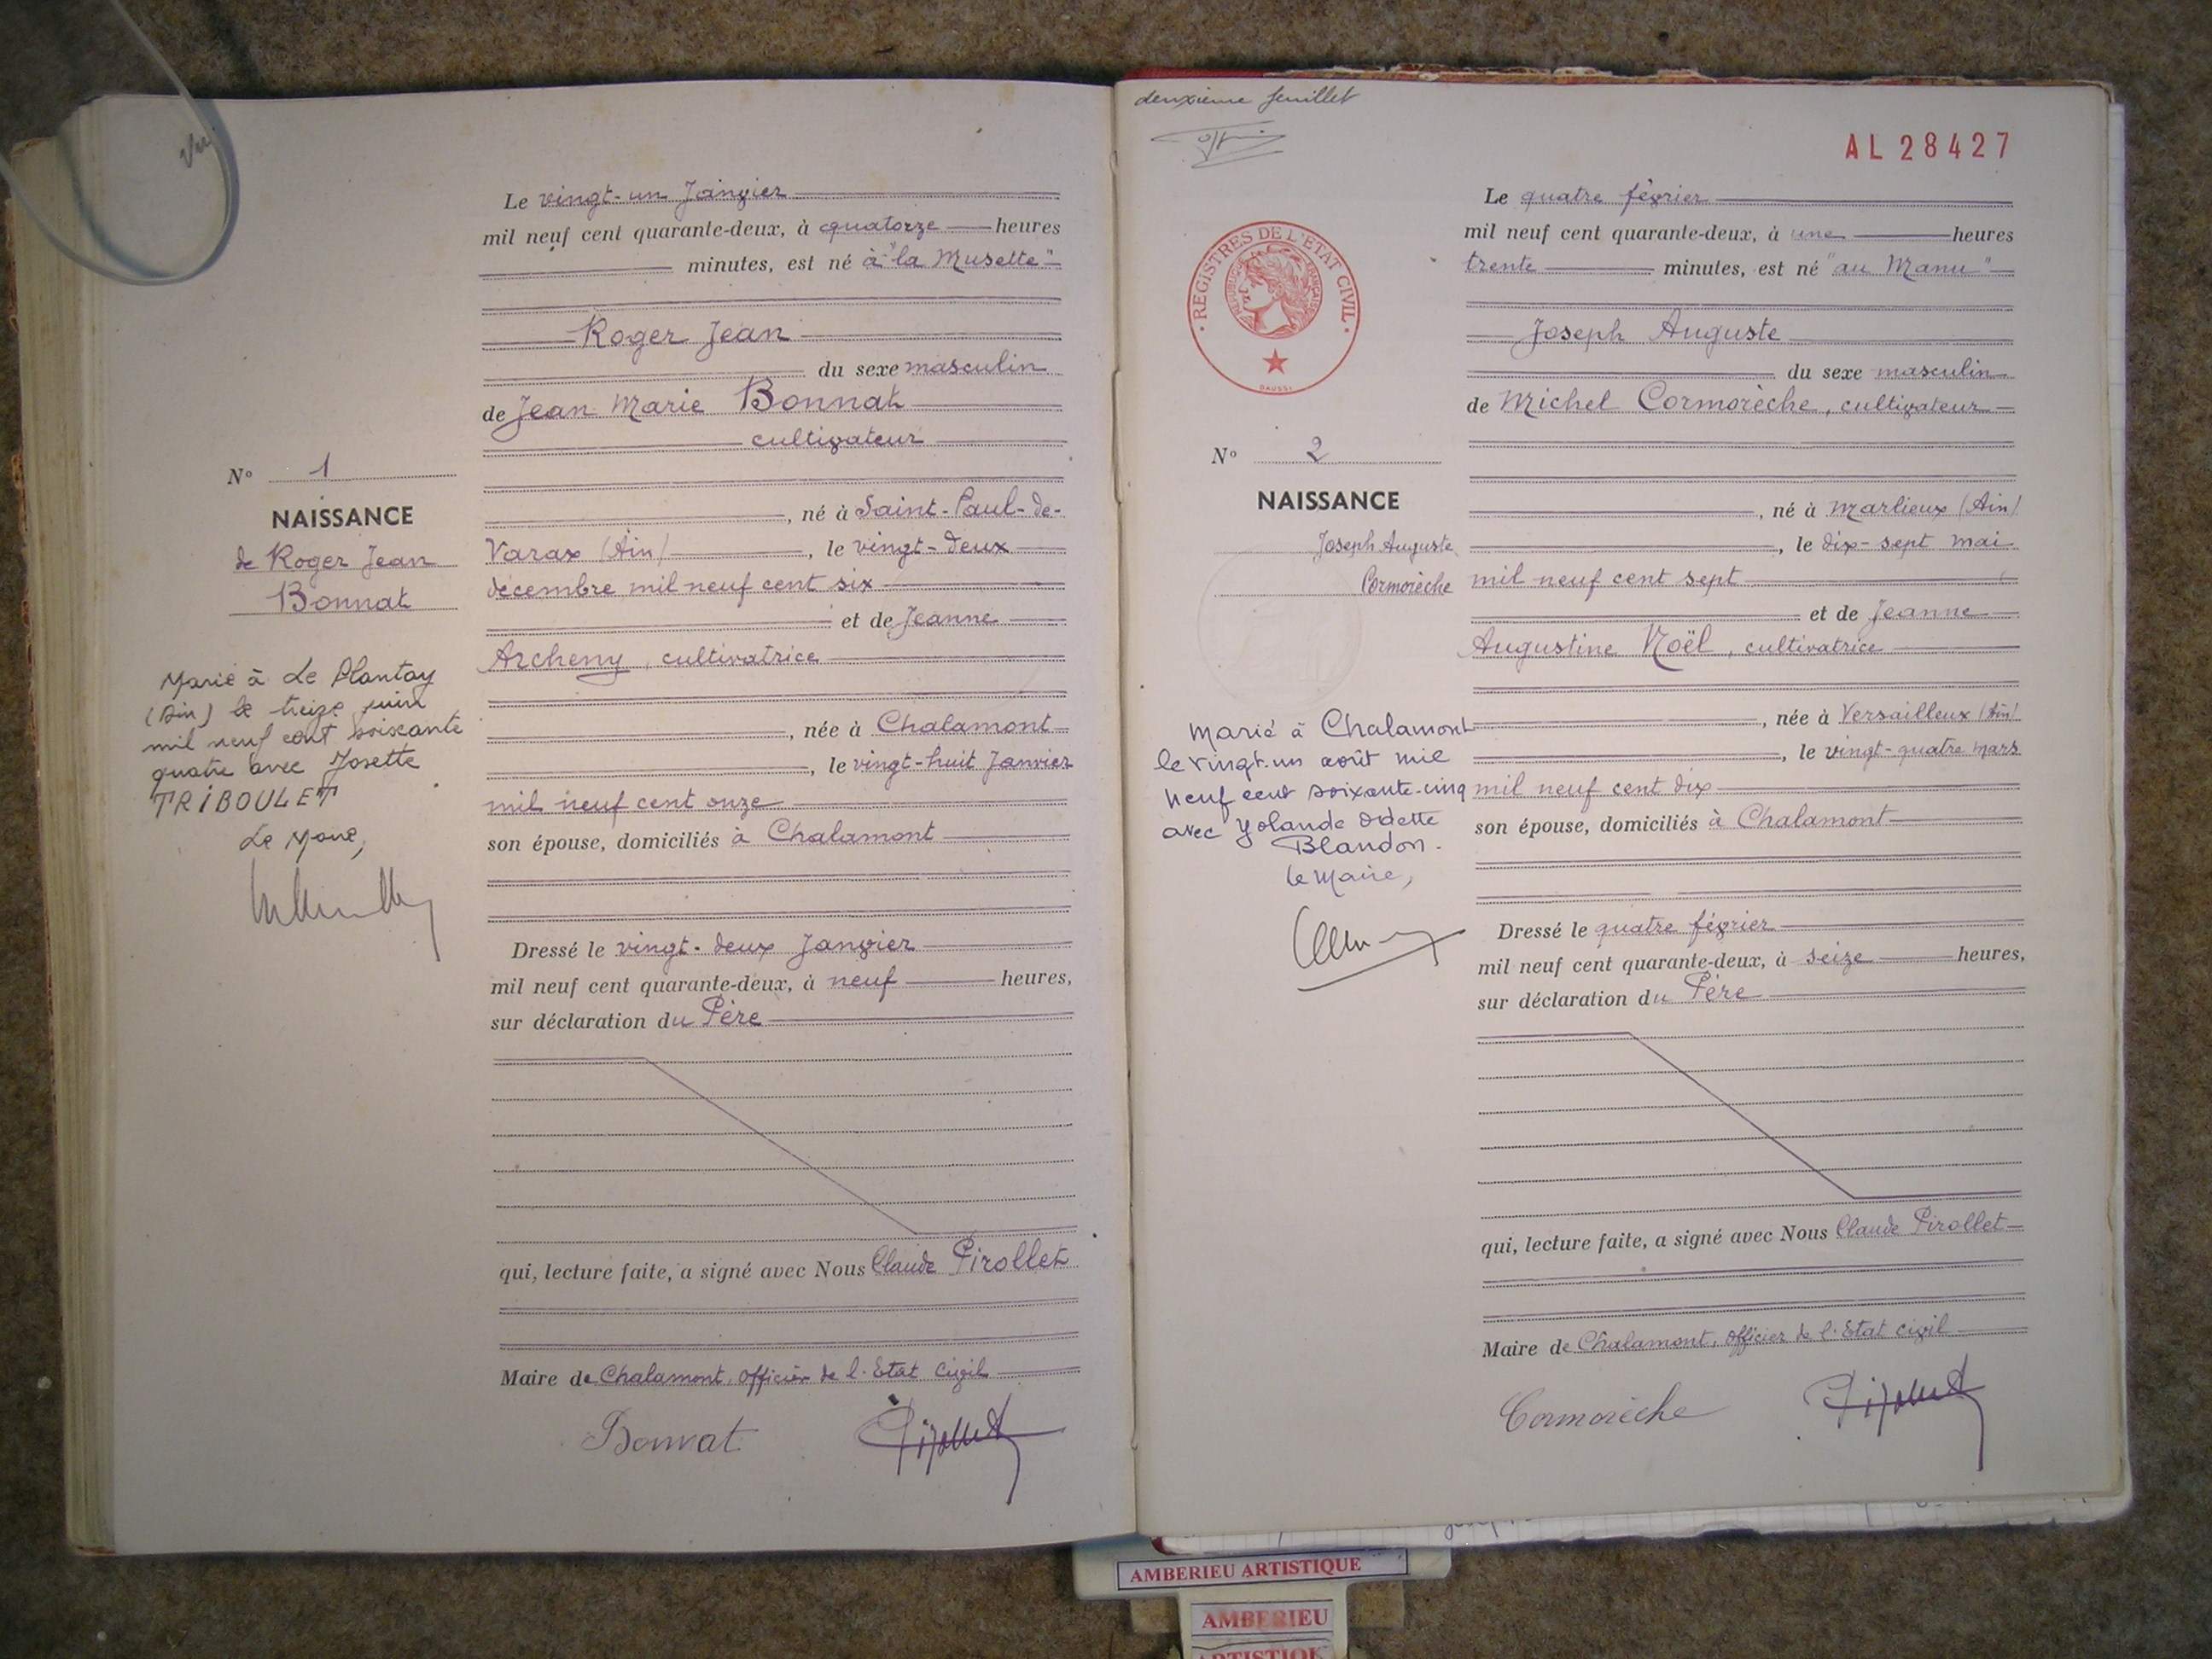 Vu
Le vingt-un Janvier
mil neuf cent quarante-deux, à quatorze heures
minutes, est né à "la Musette"
Roger Jean
du sexe masculin
de Jean Marie Bonnat
cultivateur
N° 1
NAISSANCE
de Roger Jean
Bonnat
, né à Saint-Paul-de-
Varax (Ain) , le vingt-deux
décembre mil neuf cent six
et de Jeanne
Archeny, cultivatrice
, née à Chalamont
, le vingt-huit Janvier
mil neuf cent onze
son épouse, domiciliés à Chalamont
Marié à Le Plantay
(Ain) le treize juin
mil neuf cent soixante
quatre avec Josette
TRIBOULET
Le Maire,
Dressé le vingt-deux Janvier
mil neuf cent quarante-deux, à neuf heures,
sur déclaration du Père
qui, lecture faite, a signé avec Nous Claude Pirollet
Maire de Chalamont, officier de l'Etat civil
Bonnat Pirollet
deuxième feuillet
AL 28427
REGISTRES DE L'ETAT CIVIL
REPUBLIQUE FRANÇAISE
DAUSSI
Le quatre février
mil neuf cent quarante-deux, à une heures
trente minutes, est né "au Manu"
Joseph Auguste
du sexe masculin
de Michel Cormorèche, cultivateur
N° 2
NAISSANCE
Joseph Auguste
Cormorèche
, né à Marlieux (Ain)
, le dix-sept mai
mil neuf cent sept
et de Jeanne
Augustine Noël, cultivatrice
, née à Versailleux (Ain)
, le vingt-quatre mars
mil neuf cent dix
son épouse, domiciliés à Chalamont
Marié à Chalamont
le vingt-un août mil
neuf cent soixante-cinq
avec Yolande Odette
Blandon.
le Maire,
Dressé le quatre février
mil neuf cent quarante-deux, à seize heures,
sur déclaration du Père
qui, lecture faite, a signé avec Nous Claude Pirollet
Maire de Chalamont, officier de l'Etat civil
Cormorèche Pirollet
AMBERIEU ARTISTIQUE
AMBERIEU
ARTISTIQUE